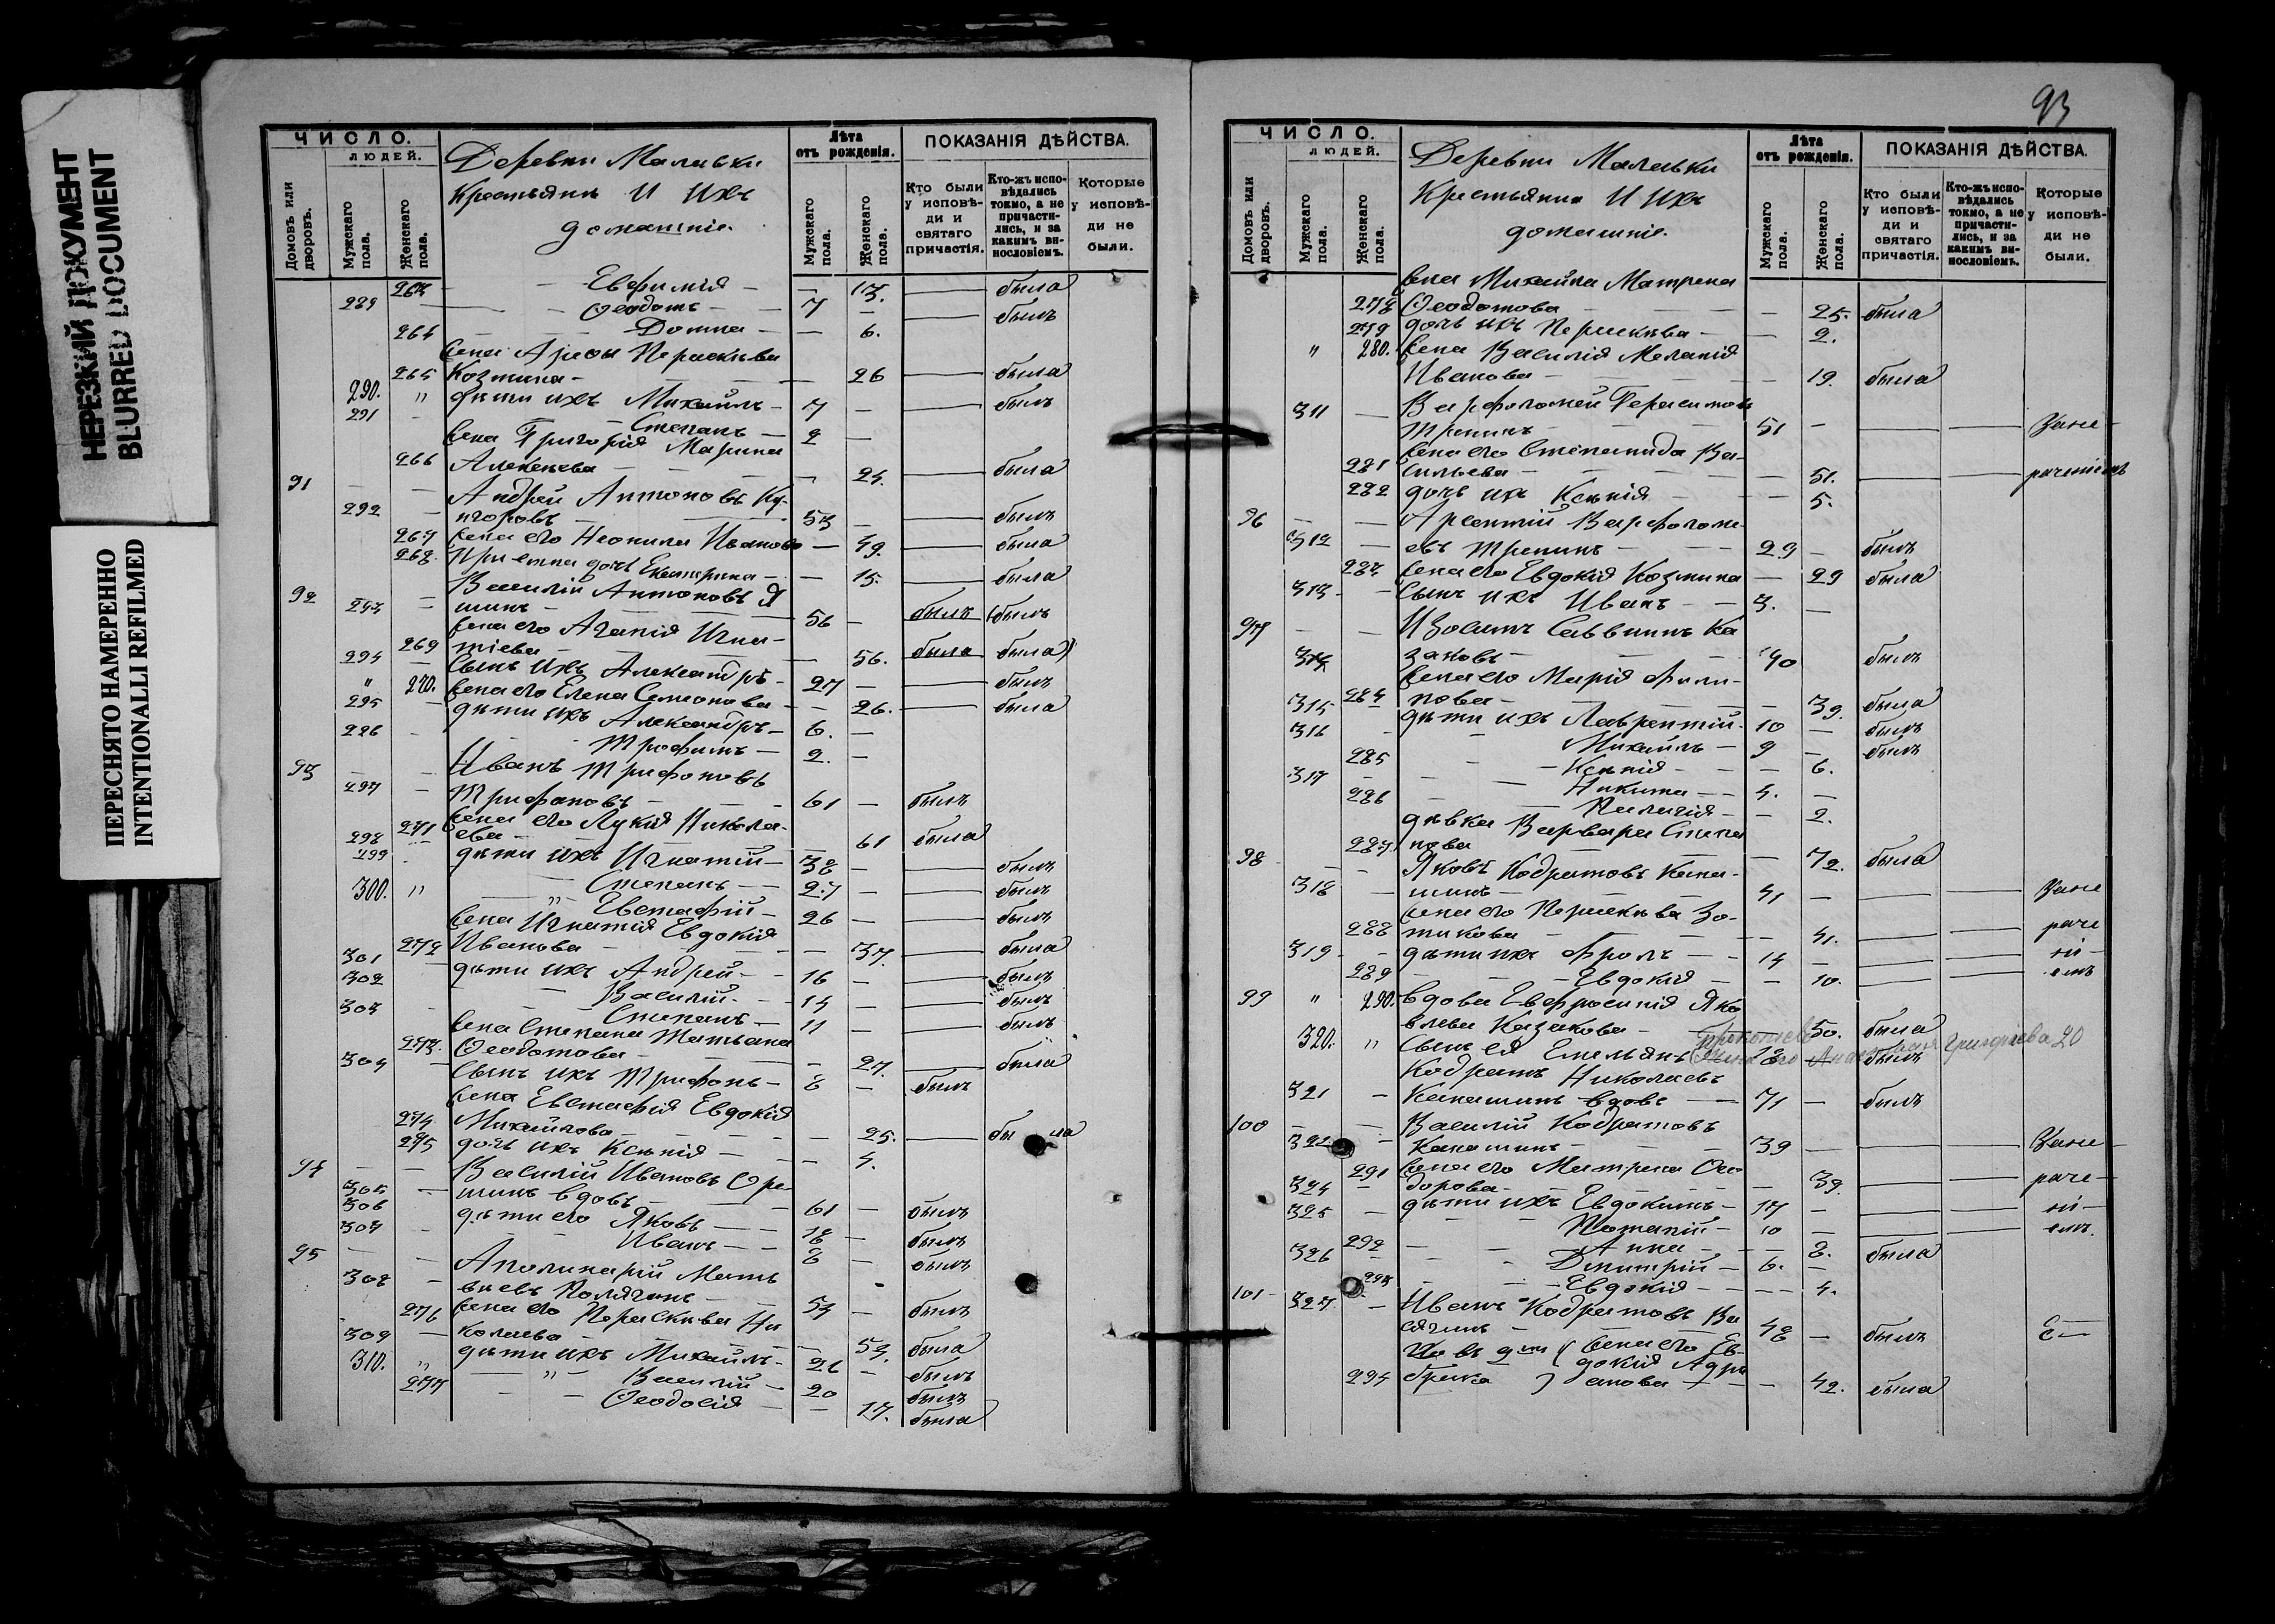 НЕРЕЗКИЙ ДОКУМЕНТ
BLURRED DOCUMENT
ПЕРЕСНЯТО НАМЕРЕННО
INTENTIONALLI REFILMED
ЧИСЛО.
ЛЮДЕЙ.
Домовъ или дворовъ.
Мужскаго пола.
Женскаго пола.
Деревни Малавки
Крестьяне И Ихъ
домашніе.
Лѣта отъ рожденія.
Мужскаго пола.
Женскаго пола.
ПОКАЗАНІЯ ДѢЙСТВА.
Кто были у исповѣди и святаго причастія.
Кто-жъ исповѣдались токмо, а не причастились, и за какимъ винословіемъ.
Которые у исповѣди не были.
263 Евфимія 13. была
289 Ѳеодотъ 7 былъ
264 Домна 6.
жена Параскева
265 Козмина 26 была
290. " дѣти ихъ Михаилъ 7 былъ
291 Степанъ 2
жена Григорія Марина
266 Алексеева 24. была
91 Андрей Антоновъ
292 53 былъ
267 жена его Неонила Иванова 49. была
268. дочь Екатерина 15. была
92 Василій Антоновъ
293 56 былъ былъ
жена его Агапія Игна-
269 тіева 56. была была
294 сынъ ихъ Александръ 27 былъ
" 270. жена его Елена Семенова 26. была
295 дѣти ихъ Александръ 6.
296 Трофимъ 2.
93 Иванъ Трифоновъ
297 Трифановъ 61 былъ
жена его Лукія Никола-
271 ева 61 была
298 дѣти ихъ Игнатій 38 былъ
299 Степанъ 27 былъ
300. " Евстафій 26 былъ
жена Игнатія Евдокія
272 Иванова 37. была
301 дѣти ихъ Андрей 16 былъ
302 Василій 14 былъ
303 Степанъ 11 былъ
жена Степана Татьяна
273. Ѳеодотова 27. была
304 сынъ ихъ Трифонъ 8 былъ
жена Евстафія Евдокія
274. Михайлова 25. была
275 дочь ихъ Ксенія 4.
94 Василій Ивановъ Оре-
305 шинъ вдовъ 61 былъ
306 дѣти его Яковъ 18 былъ
307 Иванъ 8 былъ
95 Аполинарій Матѳ
308 ѣевъ 54 былъ
276 жена его Параскева Ни
колаева 54. была
309 дѣти ихъ Михаилъ 26 былъ
310. " Василій 20 былъ
277 Ѳеодосія 17. была
93
ЧИСЛО.
ЛЮДЕЙ.
Домовъ или дворовъ.
Мужскаго пола.
Женскаго пола.
Деревни Малавки
Крестьяне И Ихъ
домашніе.
Лѣта отъ рожденія.
Мужскаго пола.
Женскаго пола.
ПОКАЗАНІЯ ДѢЙСТВА.
Кто были у исповѣди и святаго причастія.
Кто-жъ исповѣдались токмо, а не причастились, и за какимъ винословіемъ.
Которые у исповѣди не были.
жена Михаила Матрена
278 Ѳеодотова 25. была
279 дочь ихъ Параскева 2.
" 280. жена Василія Меланія
Иванова 19. была
311 Варфоломей Герасимовъ
Трепинъ 51 Зане-
жена его Степанида Ва-
281 сильева 51. раченіемъ
282 дочь ихъ Ксенія 5.
96 Арсентій Варфоломе-
312 евъ Трепинъ 29 былъ
283 жена его Евдокія Козмина 29 была
313 сынъ ихъ Иванъ 3.
97 Изосимъ Саввинъ Ка
314 заковъ 40 былъ
жена его Марія Фили-
284 пова 39. была
315 дѣти ихъ Лаврентій 10 былъ
316 Михаилъ 9 былъ
285 Ксенія 6.
317 Никита 4.
286 Пелагія 2.
дѣвка Варвара Степа
287 нова 72. была
98 Яковъ Кодратовъ Кана-
318 шинъ 41 Зане
жена его Параскева Зо-
288 тикова 41. раче
319 дѣти ихъ Фролъ 14 ні-
289 Евдокія 10. емъ
99 " 290. вдова Евфросинія Яко
влева Казакова 50. была
320. " сынъ ея Емельянъ Прокопіевъ 18 былъ
жена его Анастасія Григорьева 20
Кодратъ Николаевъ
321 Канашинъ вдовъ 71 былъ
100 Василій Кодратовъ
322 Канашинъ 39 Зане
291 жена его Матрена Ѳео
дорова 39. раче-
324 дѣти ихъ Евдокимъ 17 ні-
325 Потапій 10 емъ.
292 Анна 8. была
326 Димитрій 6.
293 Евдокія 4.
101 Иванъ Кодратовъ Ва
327 сячинъ 48 былъ
жена его Ев-
докія Адрі
294 брака анова 42. была